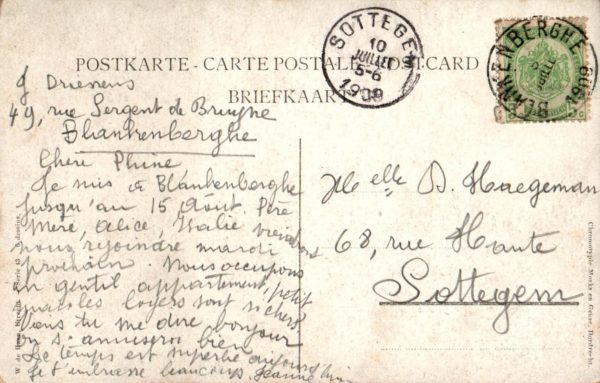 POSTKARTE - CARTE POSTALE - POSTCARD
BRIEFKAART
SOTTEGEM
10
JUILLET
5-6
1909
BLANKENBERGHE
1909
J Driesens
49, rue Sergent de Bruyne
Blankenberghe
Chère Phine
Je suis à Blankenberghe
jusqu'au 15 Août. Père
Mère, Alice, Valie viendront
nous rejoindre mardi
prochain. Nous occupons
un gentil appartement, petit
les loyers sont si chers
tu me dire bonjour
on s'amusera bien
Le temps est superbe aujourd'hui
Je t'embrasse beaucoup. Jeanne
Melle D. Haegeman
68, rue Haute
Sottegem
Chromotypie Morks en Geuze, Dordrecht.